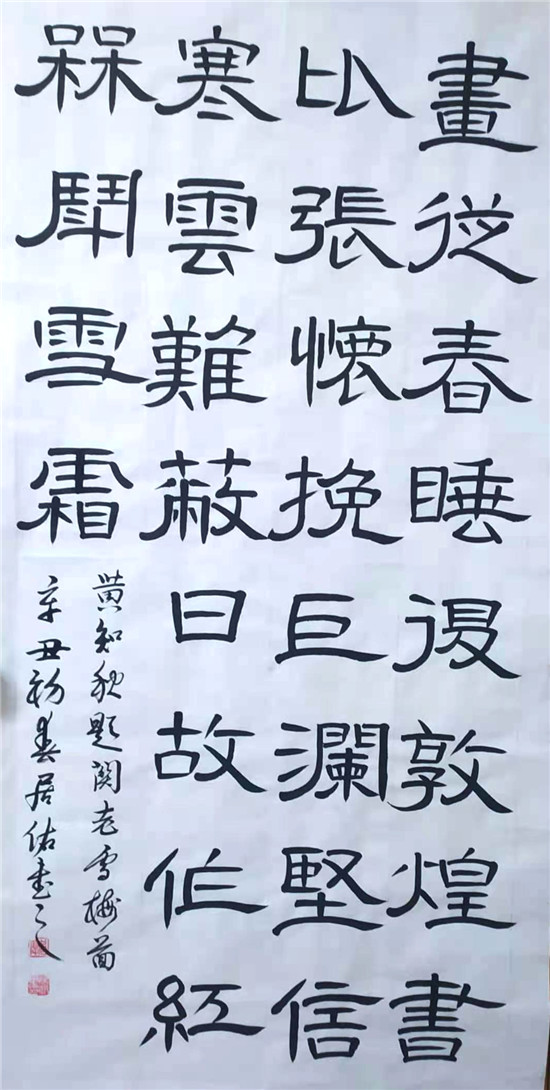 畫從春睡復敦煌書
比張懷挽巨瀾堅信
寒雲難蔽日故作紅
槑鬥雪霜
黄知秋題関老雪梅圖
辛丑初春居佑書之